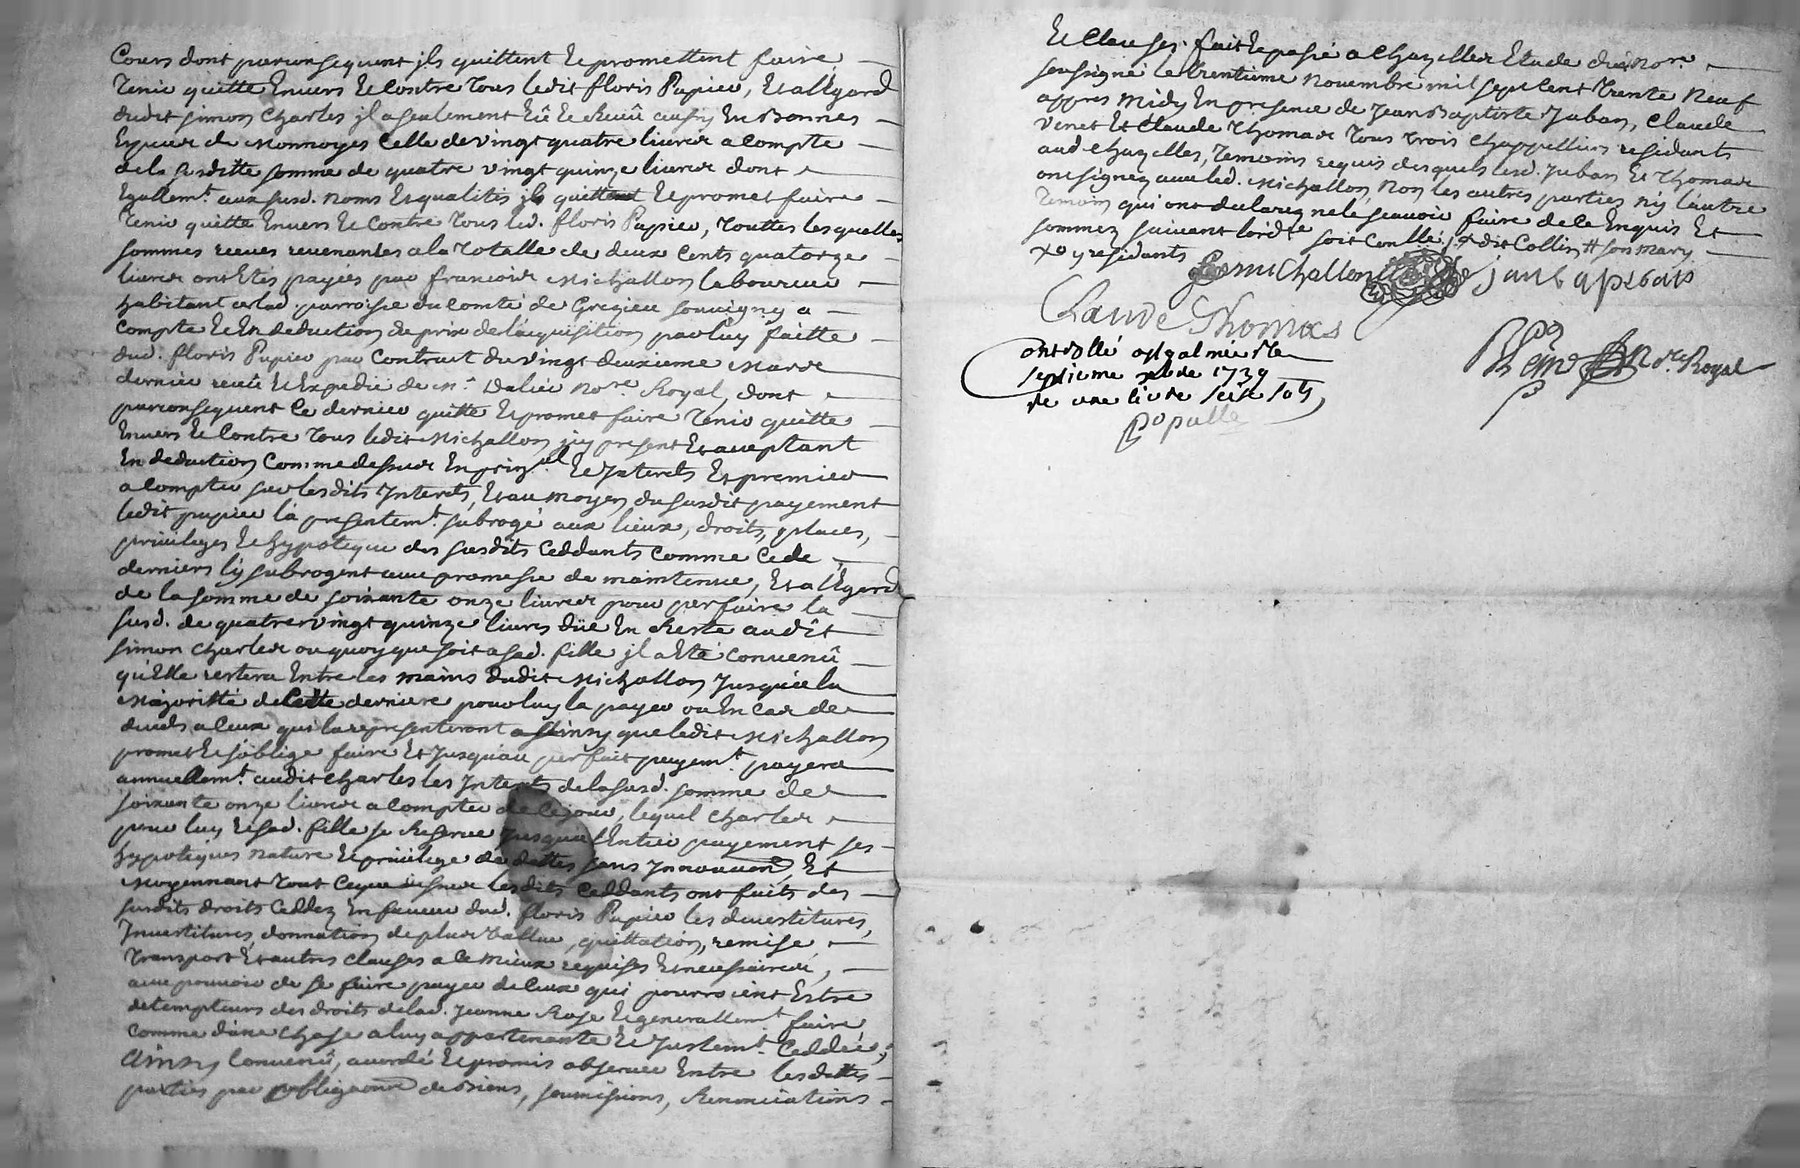 Cours dont parconsequent ils quittent et promettent faire
Tenir quitte Envers et Contre Tous ledit floris Papier, Et a légard
dudit simon Charles il a seulement Eû et Receû aussy En Bonnes
Especes de Monnoyes Celle de vingt quatre livres a Compte
de la susditte somme de quatre vingt quinze livres dont
Egallemt. aux susd. noms Et qualités ils quittent et promet faire
Tenir quitte Envers et Contre Tous led. floris Papier, Touttes lesquelles
sommes receues revenantes a la Totalle de deux Cents quatorze
livres ont Etés payées par francois Michallon laboureur
habitant en lad. parroisse du Comté de Grezieu souvigny a
Compte et En deduction du prix de lacquisition par luy faitte
dud. floris Papier par Contract du vingt deuxieme Mars
dernier receû et Expedié de Me. Dalier Nore. Royal, dont
parconsequent Ce dernier quitte et promet faire Tenir quitte
Envers et Contre Tous ledit Michallon icy present et acceptant
En deduction Comme dessus En prinal. et Interets Et premier
a Compter sur lesdits Interets, Et au moyen du susdit payement
ledit papier la presentemt. subrogé aux lieux, droits, places,
privileges et hypoteque des susdits Ceddants comme Cede
derniers l'y subrogent avec promesse de maintenue, Et a l'Egard
de la somme de soixante onze livres pour perfaire la
susd. de quatre vingt quinze livres düe En Reste audit
simon Charles ou quoy que soit a sad. fille il a Eté Convenû
qu'Elle restera Entre les mains dudit Michallon Jusqu'a la
Majoritté de Cette derniere pour luy la payer ou En Cas de
deceds a Ceux qui la representeront ainsy que ledit Michallon
promet et s'oblige faire Et Jusqu'au perfait payemt. payera
annuellemt. audit Charles les Interets de la susd. somme de
soixante onze livres a Compter de Ce jour, lequel Charles
pour luy et sad. fille se Reserve Jusqua l'Entier payement ses
hypoteques nature et privilege de dettes sans Innover, Et
Moyennant Tout Ceque dessus lesdits Ceddants ont faits des
susdits droits Ceddez En faveur dud. floris Papier les devestitures,
Investitures, donnation de plus vallue, quittation, remise,
Transport Et autres Clauses a Ce Mieux requises Et necessaires,
avec pouvoir de se faire payer de Ceux qui pourroient Estre
detempteurs des droits de lad. Jeanne Rose et generallemt. faire
Comme d'une Chose a luy appartenante et Justemt. Ceddée,
Ainsy Convenû, accordé et promis observer Entre lesdittes
parties par obligaons de Biens, soumissions, Renonciations
et Clauses. fait et passé a Chazelles Etude du Nore.
soussigné le Trentieme Novembre mil sept Cent Trente Neuf
appres Midy En presence de Jean Baptiste Juban, Claude
Venet Et Claude Thomas Tous Trois Chappelliers residants
aud. Chazelles, Temoins requis desquels lesd. Juban et Thomas
ont signez avec led. Michallon, non les autres parties ny lautre
Temoin qui ont declarez ne le scavoir faire de ce Enquis Et
sommez suivant lordce. soit Conllé. dit Collin # son Mary
& y residants
Michallon Jan Baptiste Juban
Claude Thomas
Controllé a St galmier le
septieme xbre 1739
re une livre seise sols
Populle
Nre. Royal